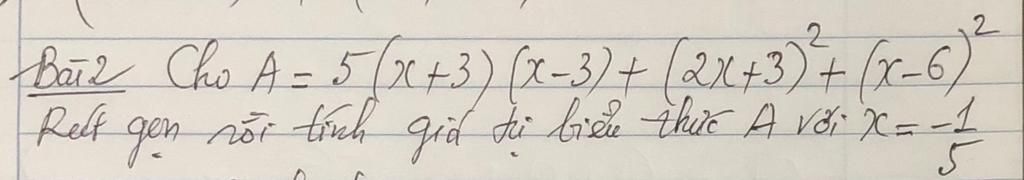 Bài 2 Cho A = 5(x+3)(x-3) + (2x+3)² + (x-6)²
Rút gọn rồi tính giá trị biểu thức A với x = -1/5